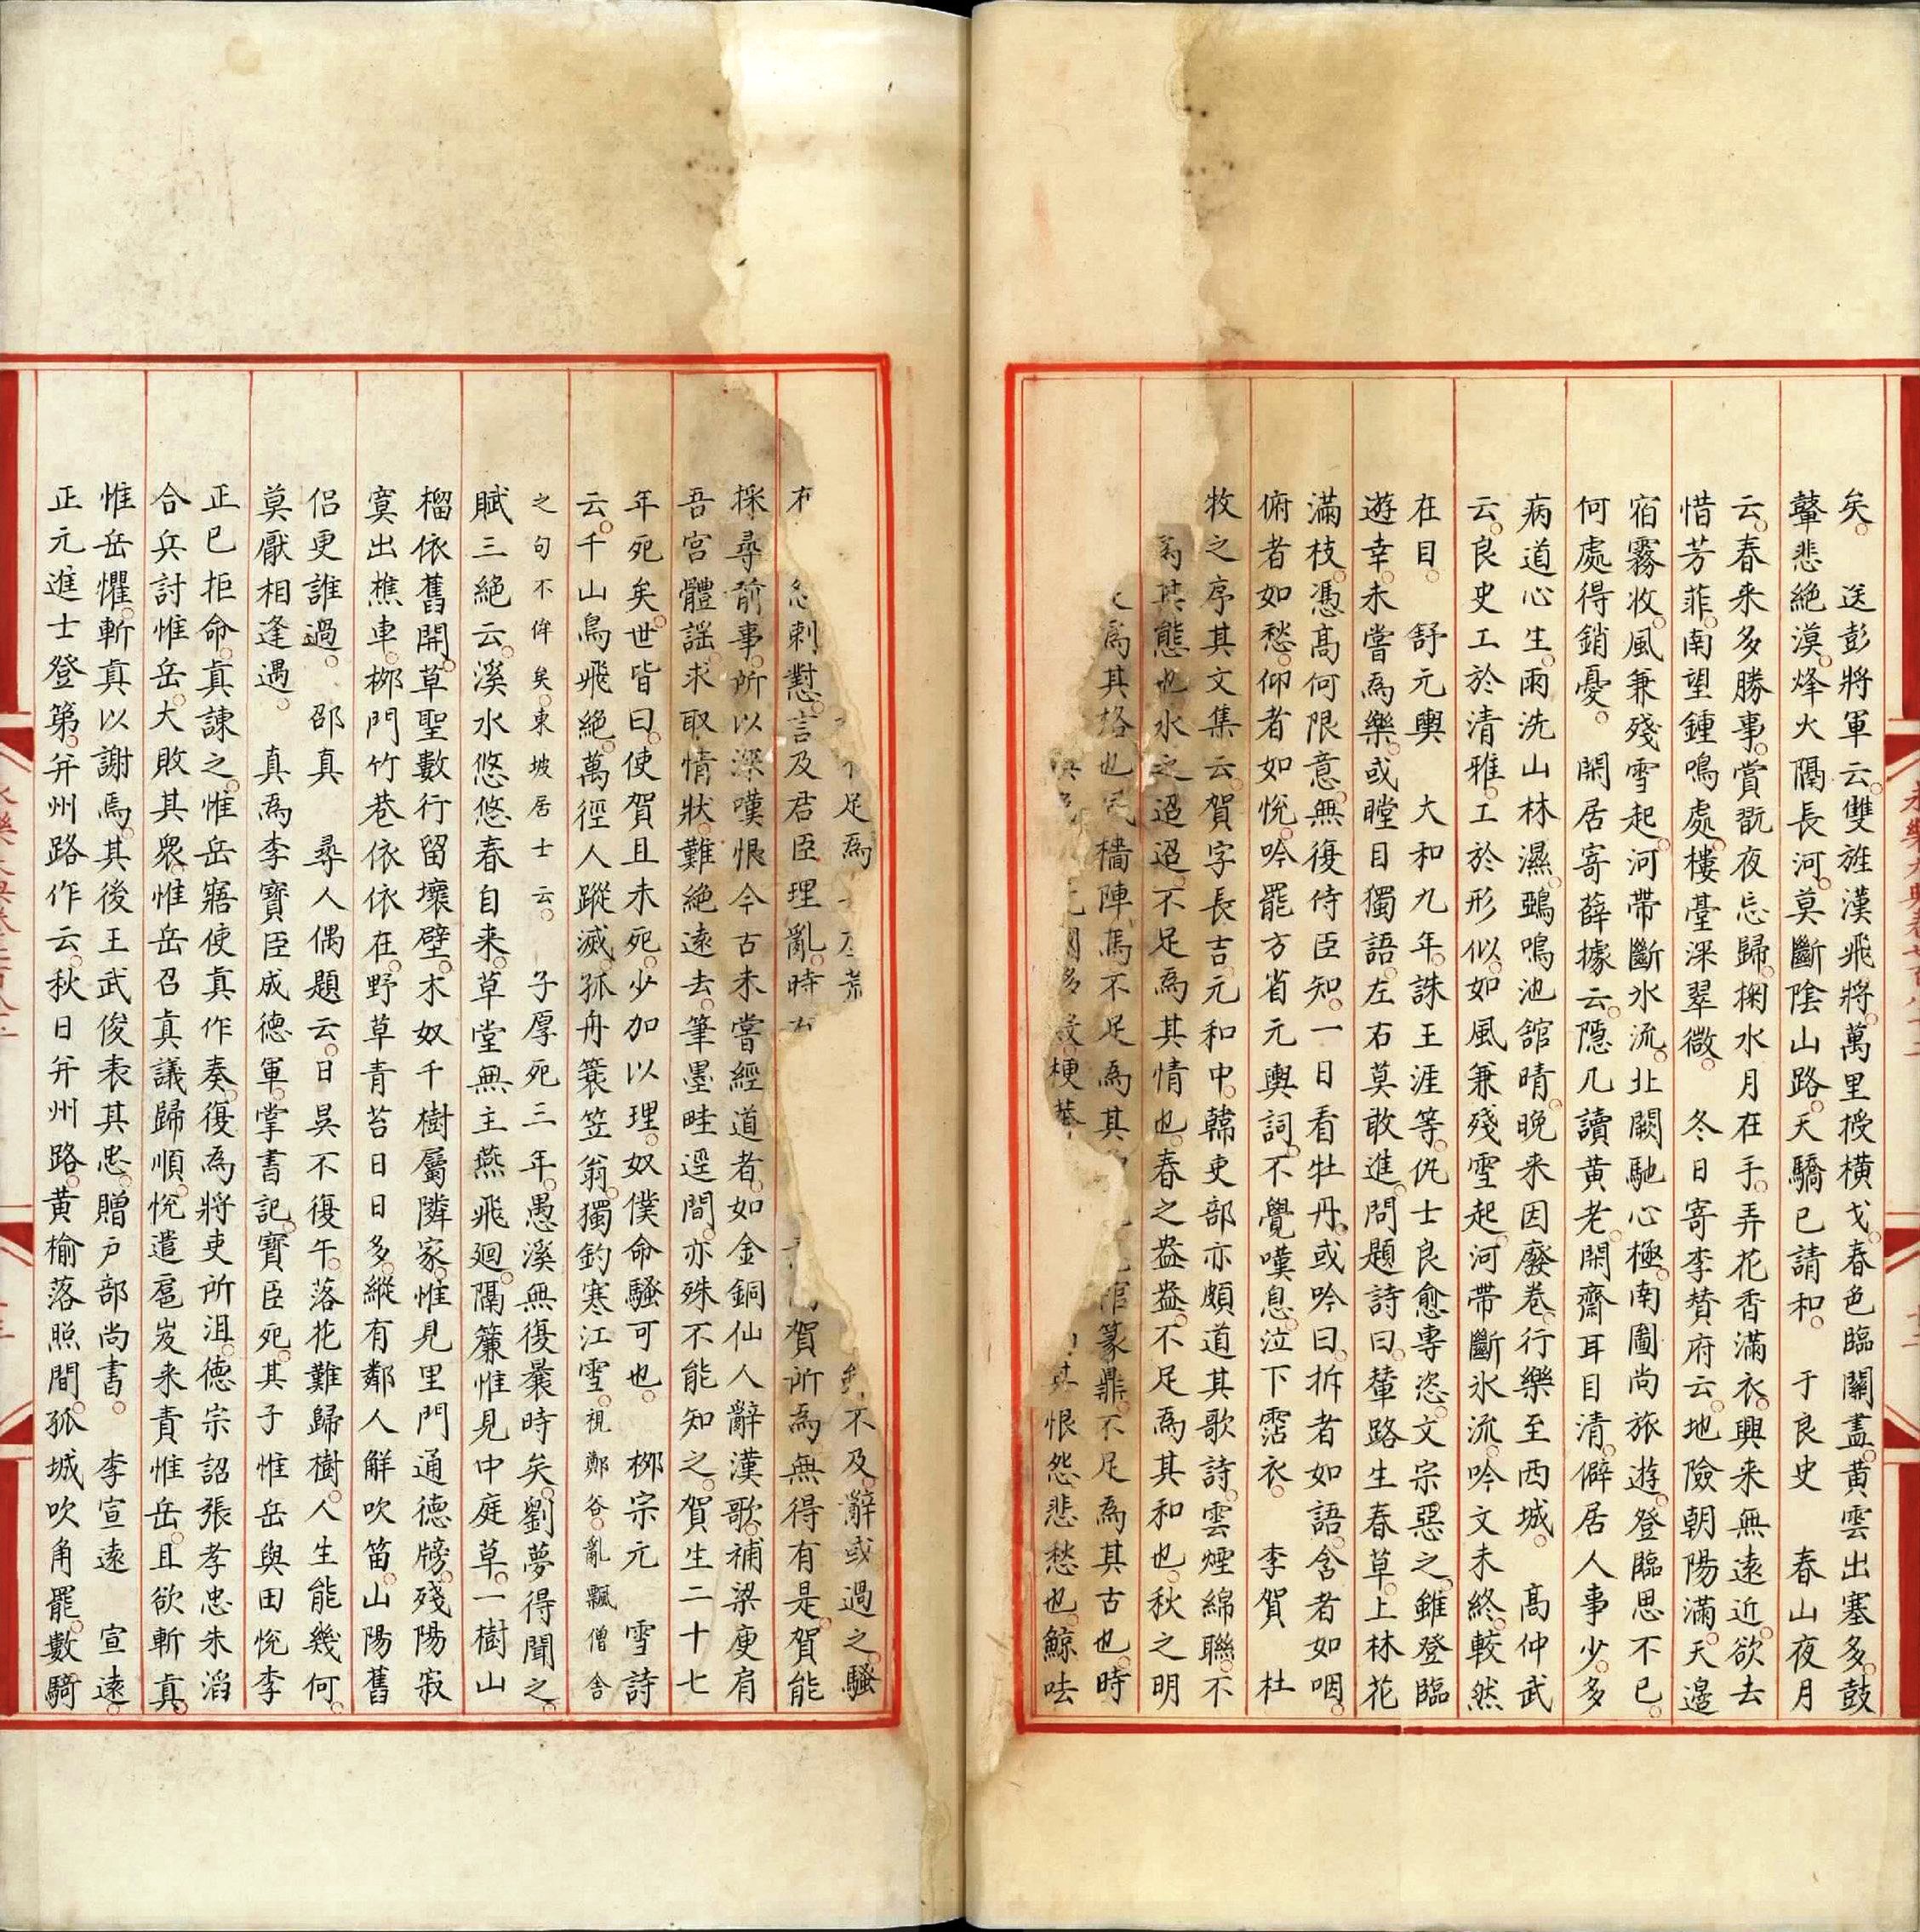 矣。送彭將軍云。雙旌漢飛將。萬里授橫戈。春色臨關盡。黃雲出塞多。鼓
鼙悲絕漠。烽火隔長河。莫斷陰山路。天驕已請和。于良史 春山夜月
云。春來多勝事。賞翫夜忘歸。掬水月在手。弄花香滿衣。興來無遠近。欲去
惜芳菲。南望鍾鳴處。樓臺深翠微。冬日寄李贊府云。地險朝陽滿。天邊
宿霧收。風兼殘雪起。河帶斷氷流。北闕馳心極。南圖尚旅遊。登臨思不已。
何處得銷憂。閑居寄薛據云。隱几讀黃老。閑齋耳目清。僻居人事少。多
病道心生。雨洗山林濕。鵶鳴池館晴。晚來因廢卷。行樂至西城。高仲武
云。良史工於清雅。工於形似。如風兼殘雪起。河帶斷氷流。吟文未終。較然
在目。舒元輿 大和九年。誅王涯等。仇士良愈專恣。文宗惡之。雖登臨
遊幸。未嘗為樂。或瞠目獨語。左右莫敢進。問題詩曰。輦路生春草。上林花
滿枝。憑高何限意。無復侍臣知。一日看牡丹。或吟曰。拆者如語。含者如咽。
俯者如愁。仰者如悅。吟罷方省元輿詞。不覺嘆息。泣下霑衣。李賀 杜
牧之序其文集云。賀字長吉。元和中。韓吏部亦頗道其歌詩。雲煙綿聯。不
為其態也。水之迢迢。不足為其情也。春之盎盎。不足為其和也。秋之明
為其格也。風檣陣馬。不足為其 篆鼎。不足為其古也。時
色 國 多 梗莽 其恨怨悲愁也。鯨呿
不足為 荒 不及。辭或過之。騷
有 怨刺懟。言及君臣理亂。時有 賀所為無得有是。賀能
採尋前事。所以深嘆恨今古未嘗經道者。如金銅仙人辭漢歌。補梁庾肩
吾宮體謠。求取情狀。難絕遠去。筆墨畦逕間。亦殊不能知之。賀生二十七
年死矣。世皆曰。使賀且未死。少加以理。奴僕命騷可也。柳宗元 雪詩
云。千山鳥飛絕。萬徑人蹤滅。孤舟簑笠翁。獨釣寒江雪。視鄭谷。亂飄僧舍
之句不侔矣。東坡居士云。子厚死三年。愚溪無復曩時矣。劉夢得聞之。
賦三絕云。溪水悠悠春自來。草堂無主燕飛迴。隔簾惟見中庭草。一樹山
榴依舊開。草聖數行留壞壁。木奴千樹屬隣家。惟見里門通德牓。殘陽寂
寞出樵車。柳門竹巷依依在。野草青苔日日多。縱有鄰人解吹笛。山陽舊
侶更誰過。邵真 尋人偶題云。日吳不復午。落花難歸樹。人生能幾何。
莫厭相逢遇。真為李寶臣成德軍。掌書記。寶臣死。其子惟岳與田悅李
正已拒命。真諫之。惟岳寤使真作奏。復為將吏所沮。德宗詔張孝忠朱滔
合兵討惟岳。大敗其眾。惟岳召真議歸順。悅遣扈岌來責惟岳。且欲斬真。
惟岳懼。斬真以謝焉。其後王武俊表其忠。贈戶部尚書。李宣遠 宣遠。
正元進士登第。并州路作云。秋日并州路。黃榆落照間。孤城吹角罷。數騎